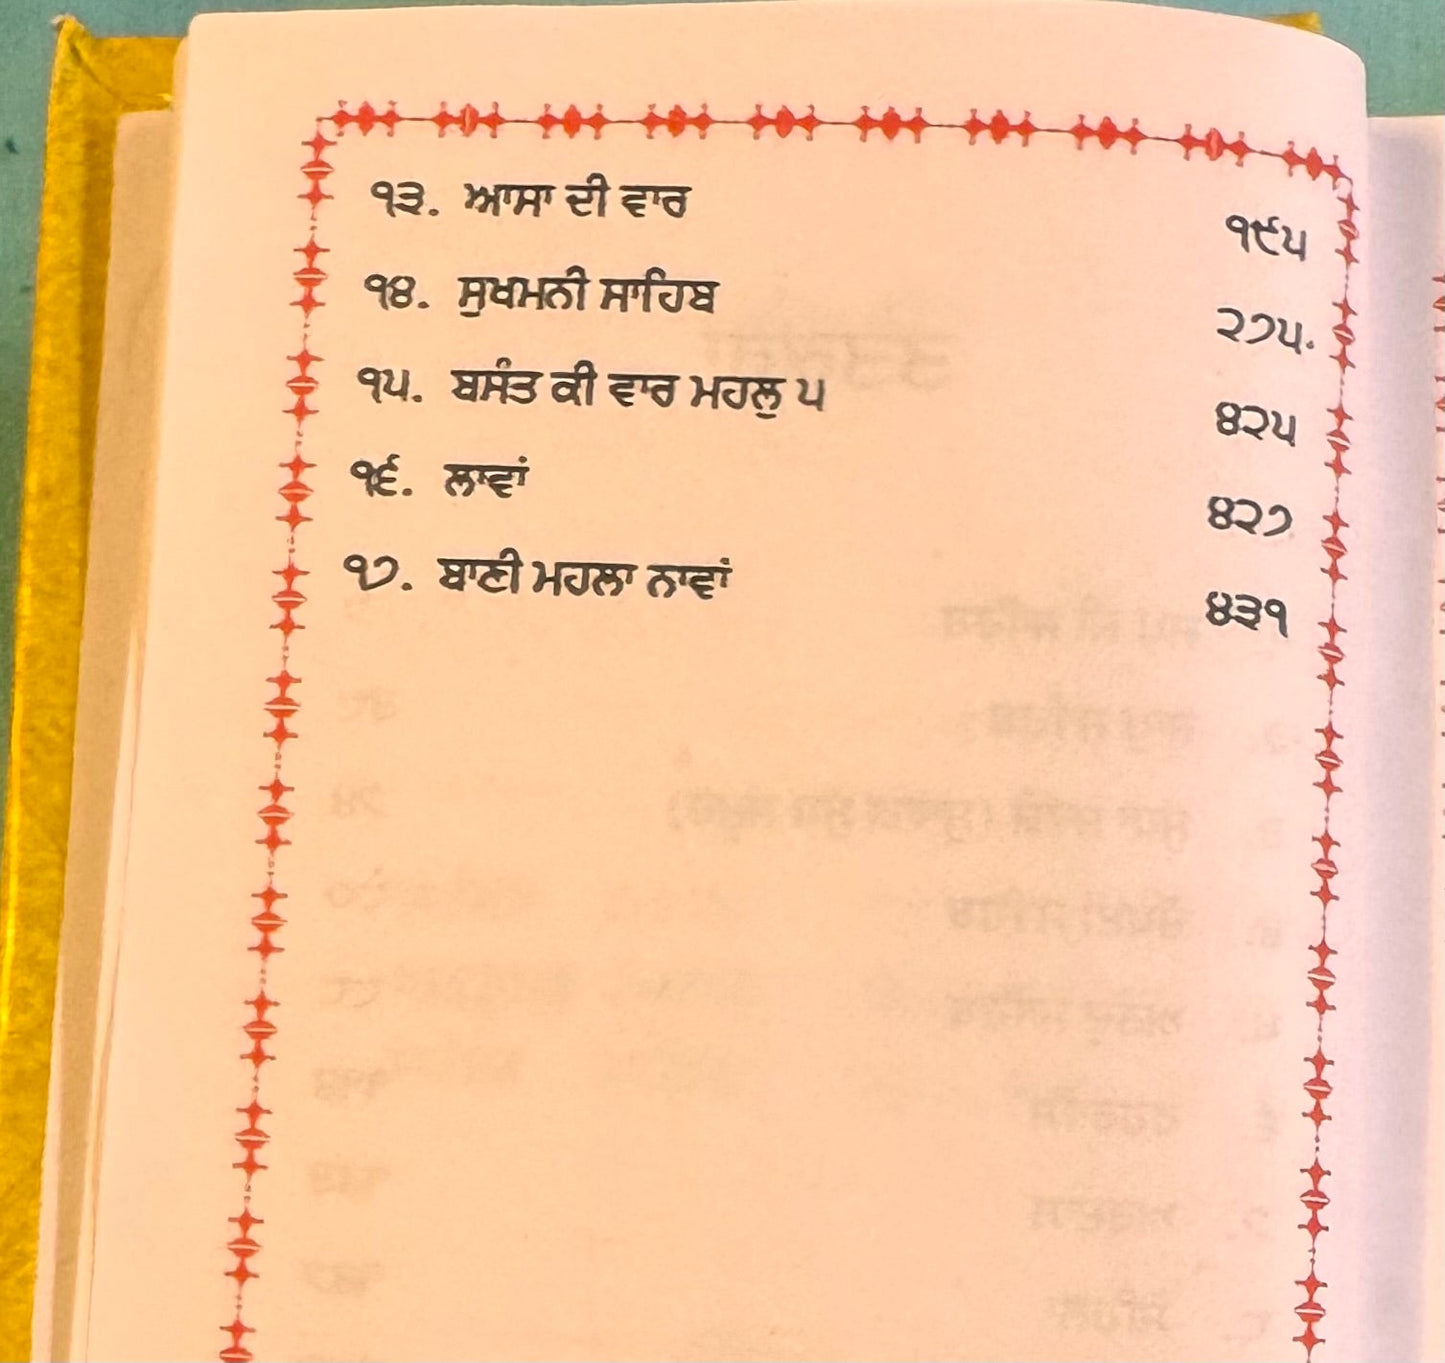 ੧੩. ਆਸਾ ਦੀ ਵਾਰ ੧੯੫
੧੪. ਸੁਖਮਨੀ ਸਾਹਿਬ ੨੭੫.
੧੫. ਬਸੰਤ ਕੀ ਵਾਰ ਮਹਲੁ ੫ ੪੨੫
੧੬. ਲਾਵਾਂ ੪੨੭
੧੭. ਬਾਣੀ ਮਹਲਾ ਨਾਵਾਂ ੪੩੧